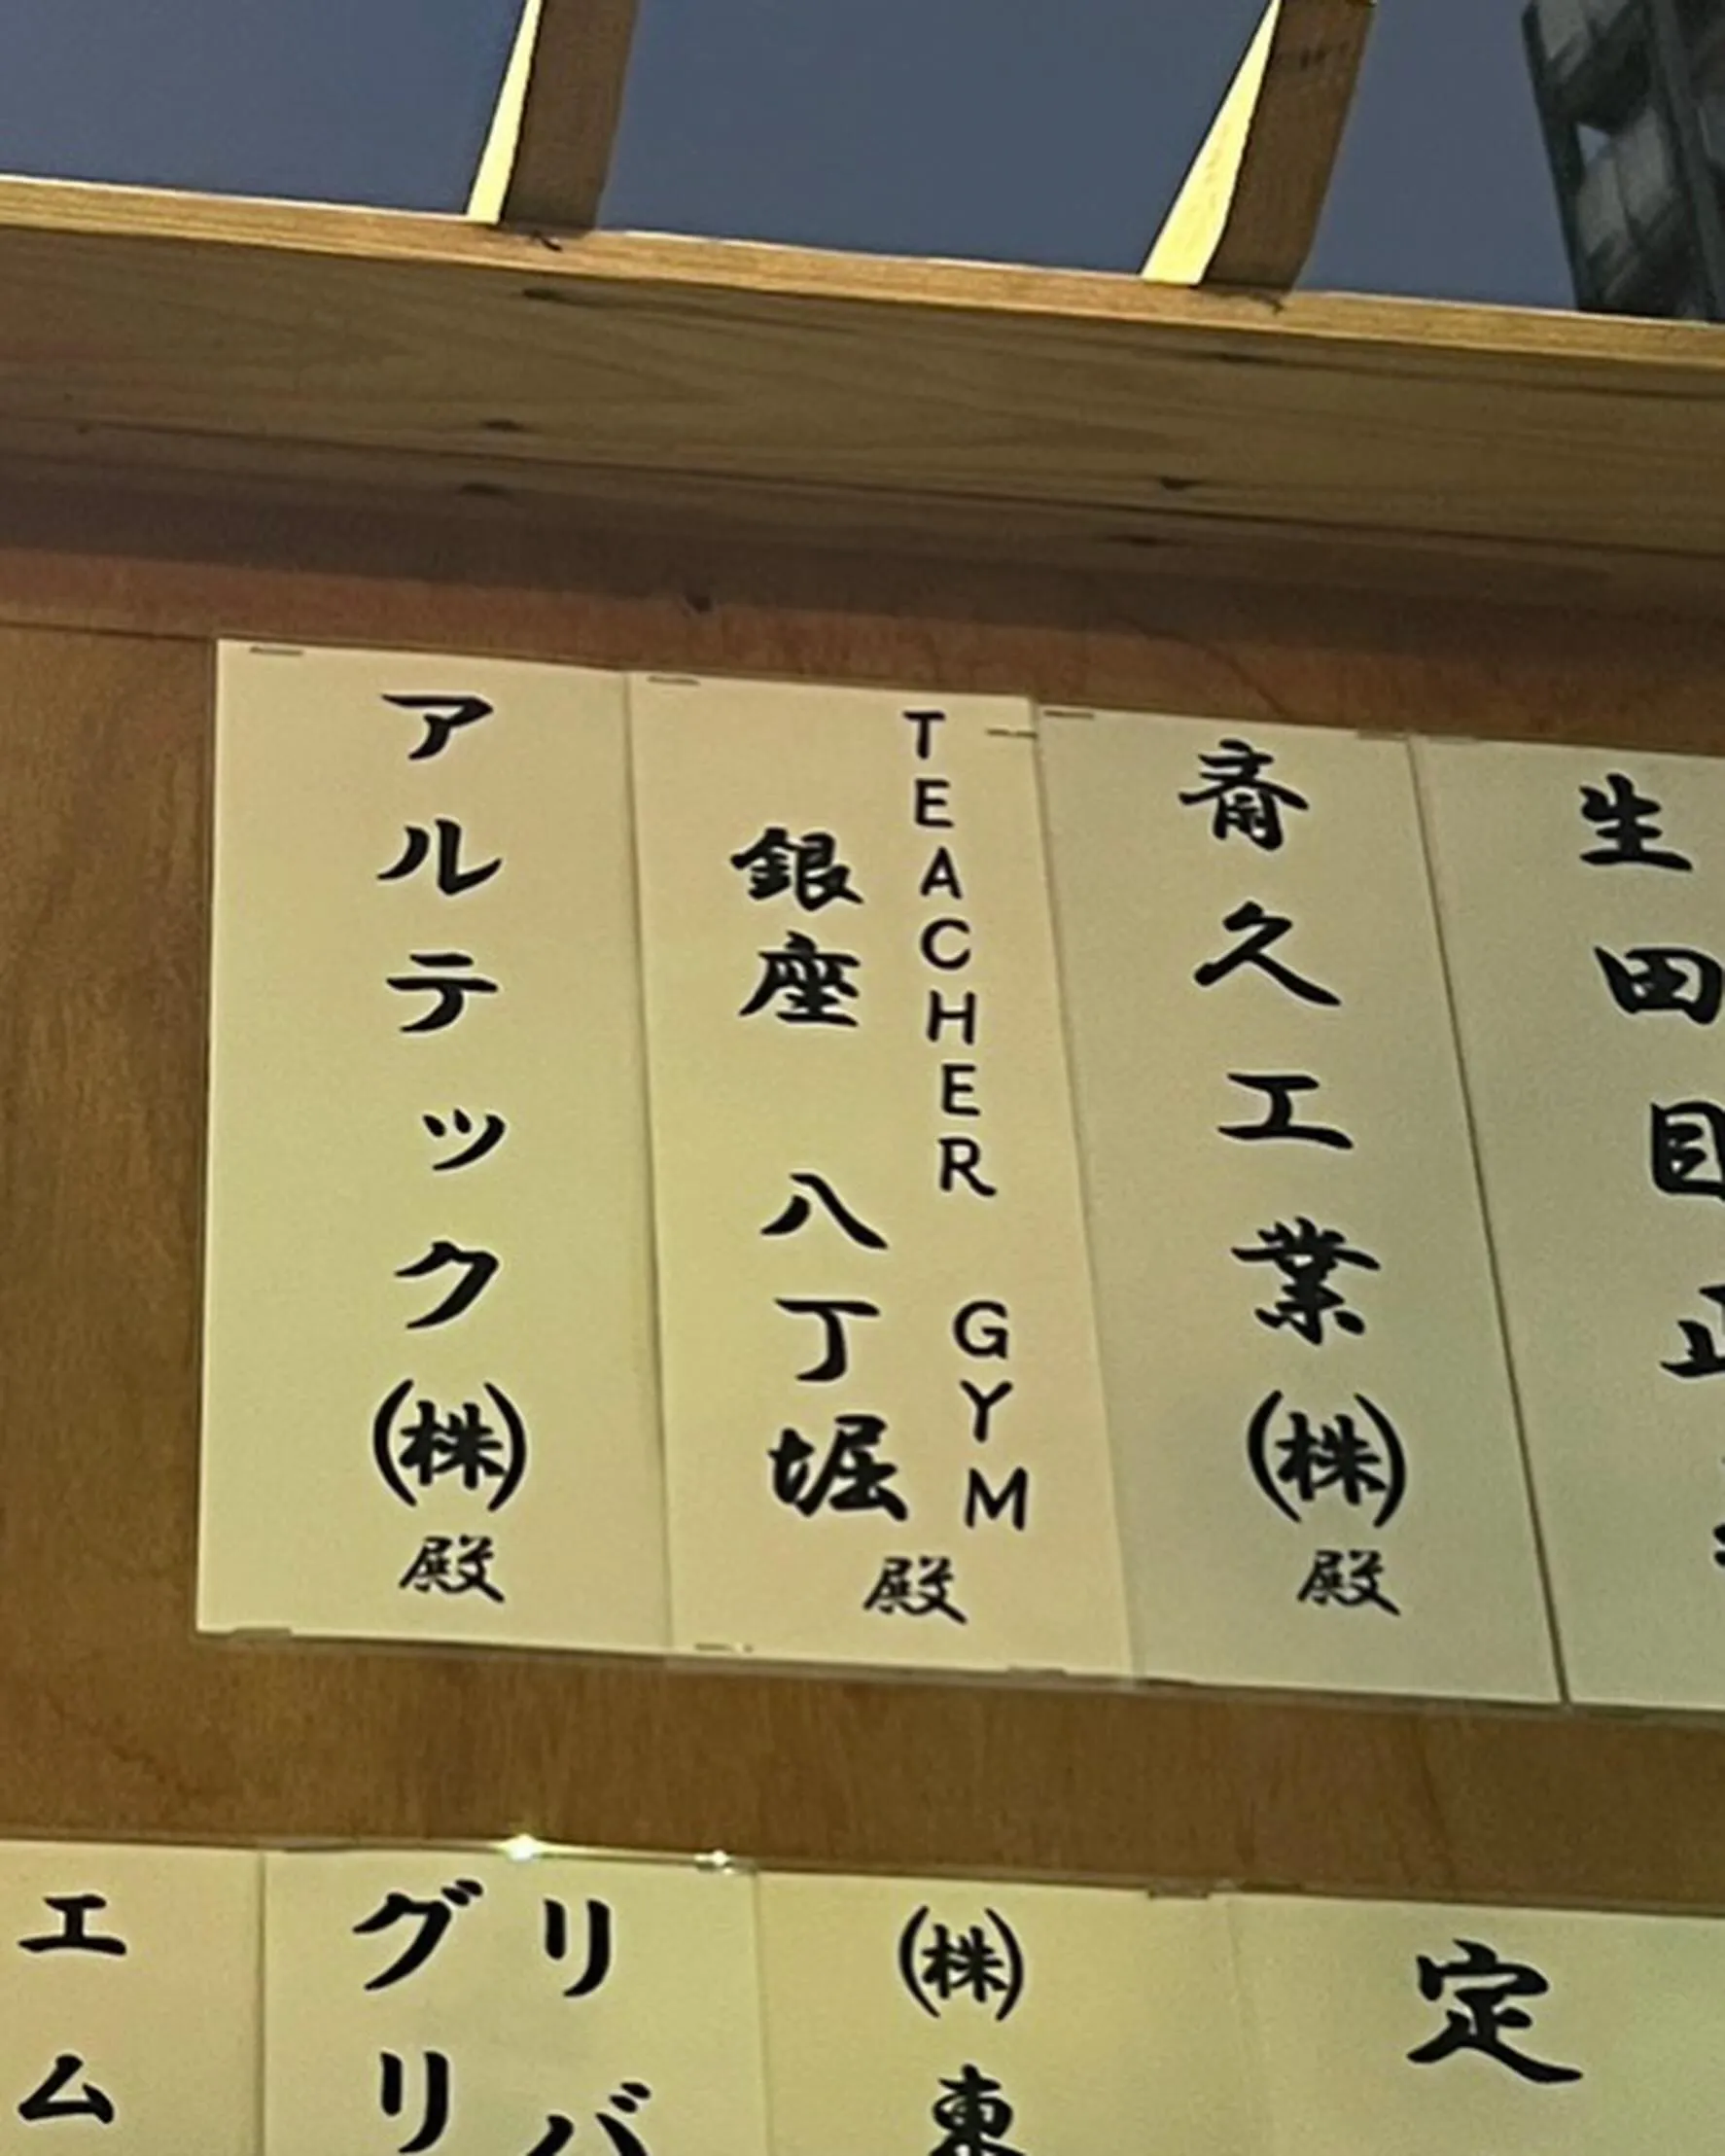 生田目
斎久工業㈱殿
TEACHER GYM
銀座 八丁堀殿
アルテック㈱殿
定
㈱東
リバ
グリ
エム